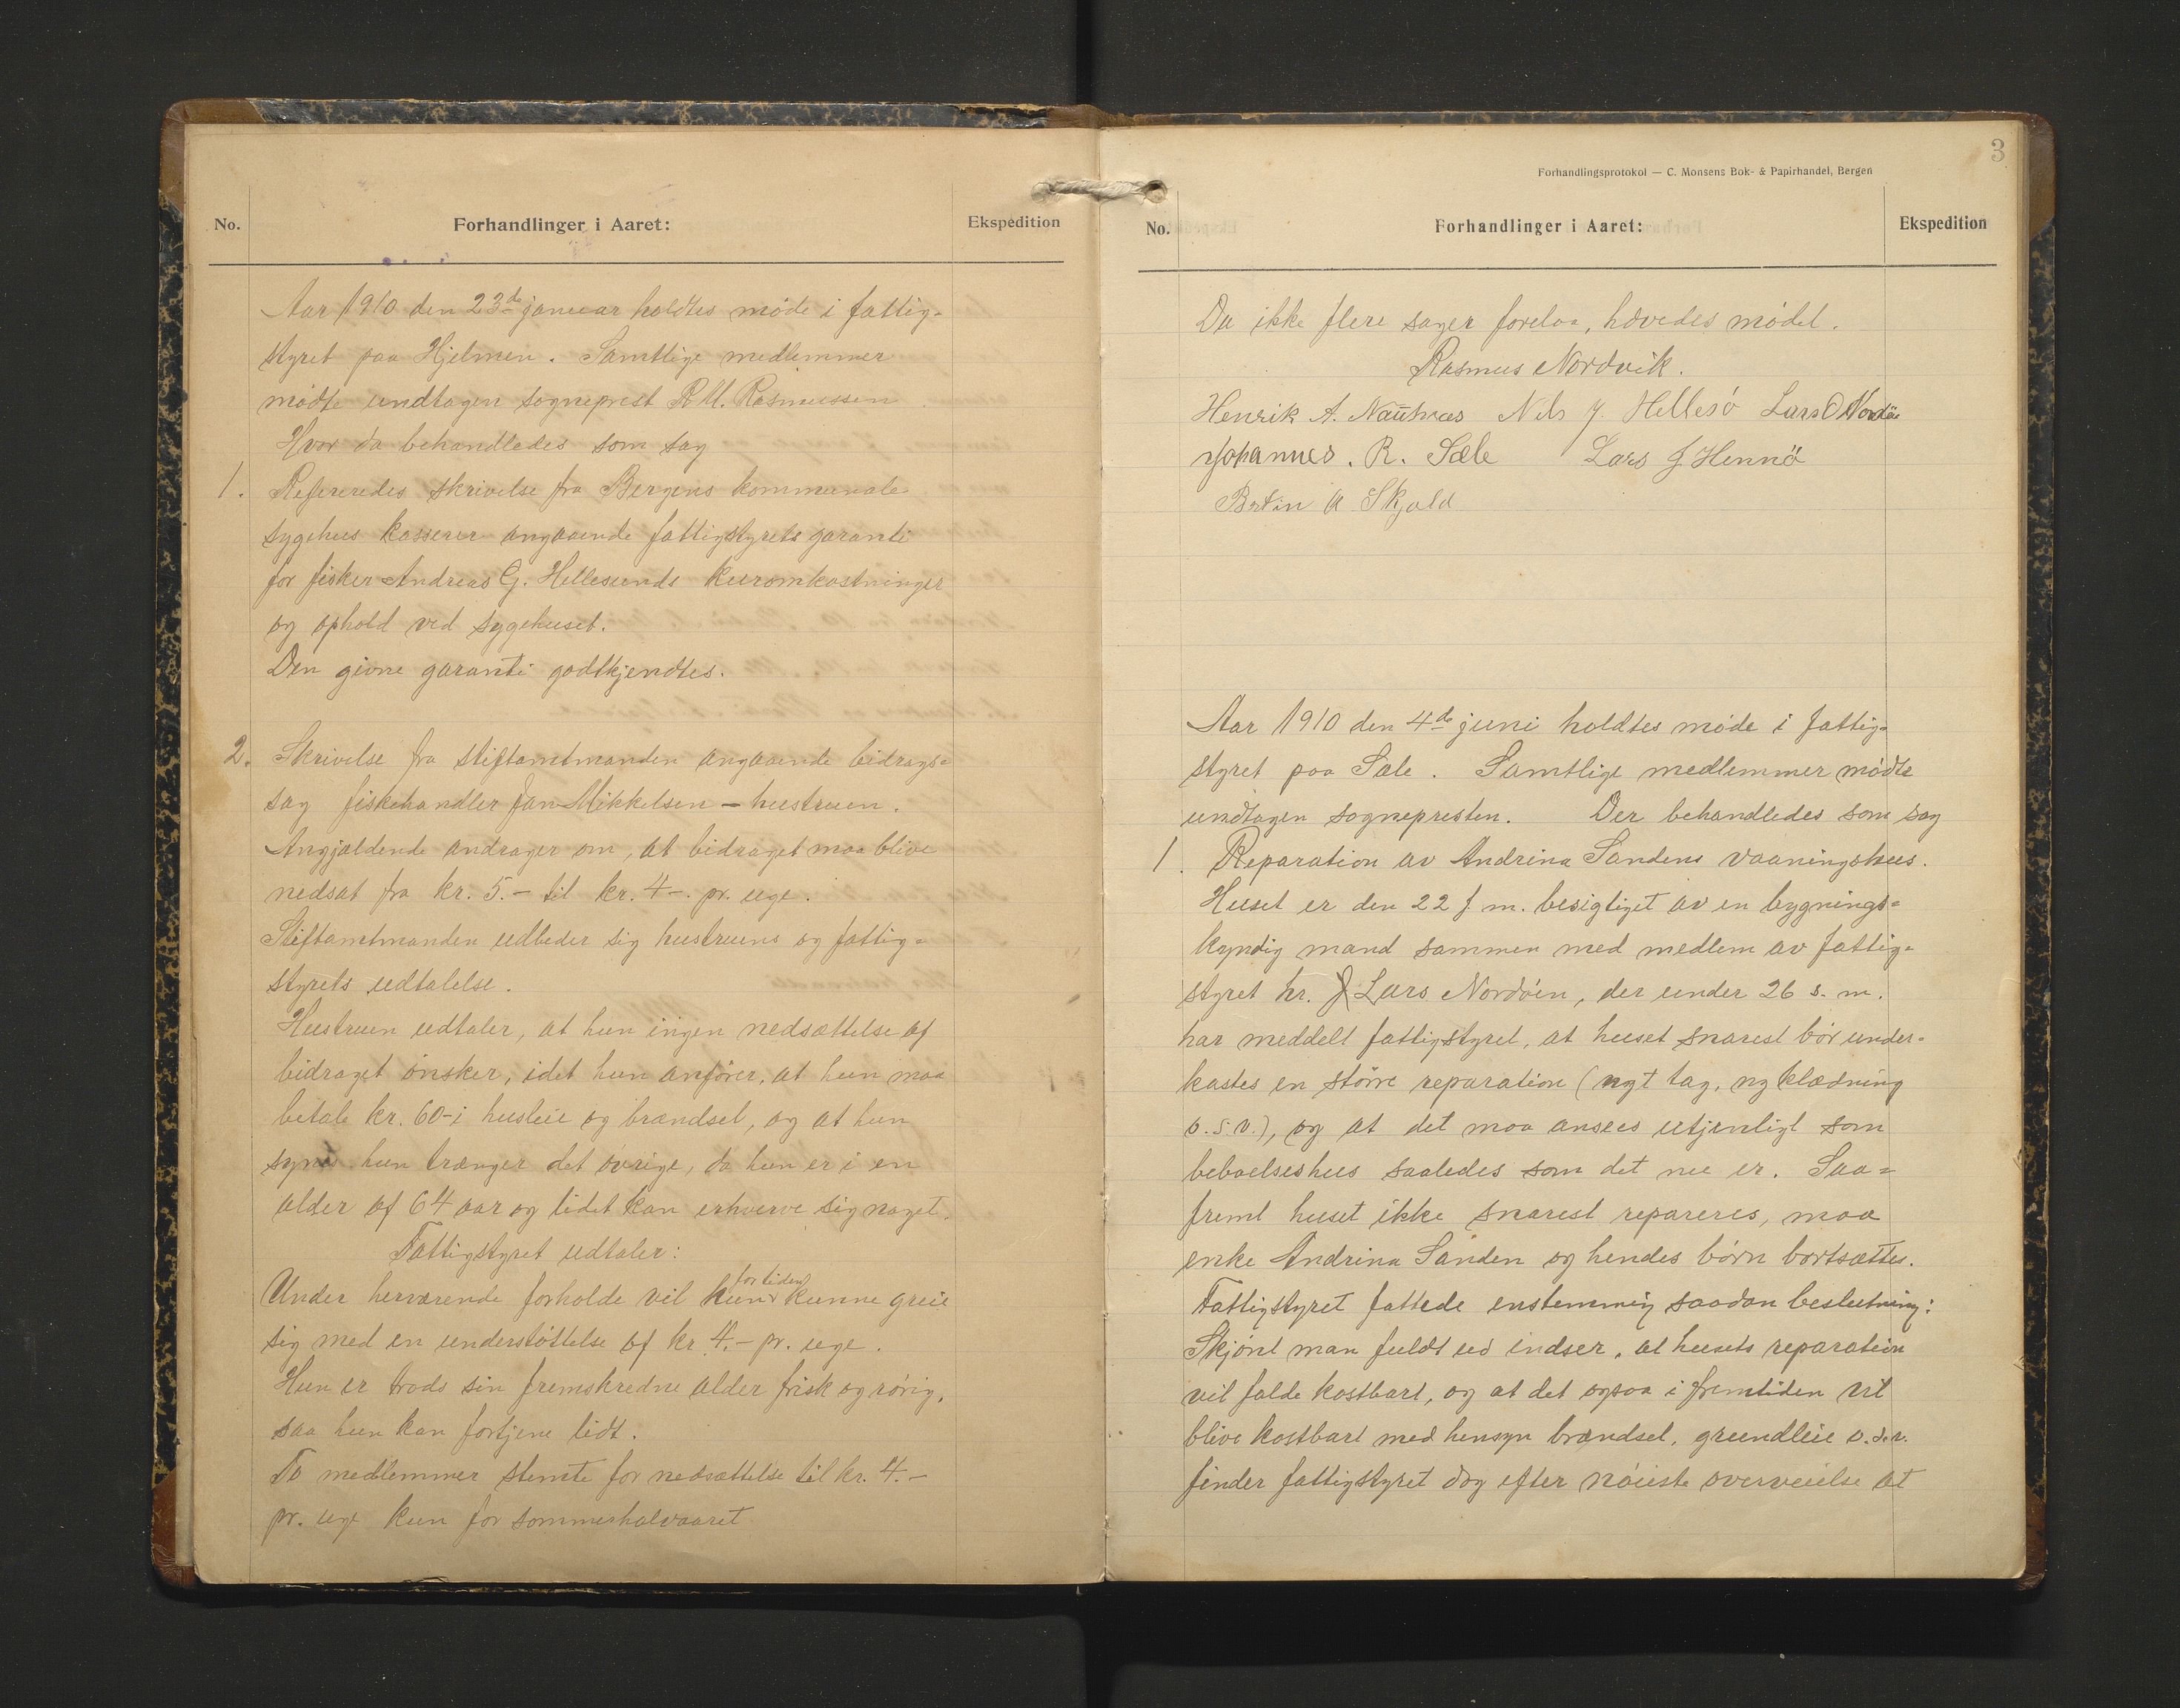 No.
Forhandlinger i Aaret:
Ekspedition
Aar 1910 den 23de januar holdtes møde i fattig-
styret paa Hjelmen. Samtlige medlemmer
mødte undtagen sogneprest R. M. Rasmussen
Hvor da behandledes som sag
1. Refereredes skrivelse fra Bergens kommunale
sygehus kasserer angaaende fattigstyrets garanti
for fisker Andreas G. Hellesunds kuromkostninger
og ophold ved sygehuset.
Den givne garanti godkjendtes.
2. Skrivelse fra stiftamtmanden angaaende bidrags-
sag fiskehandler Jan Mikkelsen - hustruen.
Angjældende andrager om, at bidraget maa blive
nedsat fra kr. 5.- til kr. 4-. pr. uge.
Stiftamtmanden udbeder sig hustruens og fattig-
styrets udtalelse.
Hustruen udtaler, at hun ingen nedsættelse af
bidraget ønsker, idet hun anfører, at hun maa
betale kr. 60- i husleie og brændsel, og at hun
synes hun trænger det øvrige, da hun er i en
alder af 64 aar og lidet kan erhverve sig noget.
Fattigstyret udtaler:
Under herværende forholde vil hun for tiden kunne greie
sig med en understøttelse af kr 4.- pr. uge.
Hun er trods sin fremskredne alder frisk og rørig,
saa hun kan fortjene lidt.
To medlemmer stemte for nedsættelse til kr. 4.-
pr. uge kun for sommerhalvaaret
3
Forhandlingsprotokol — C. Monsens Bok- & Papirhandel, Bergen
No.
Forhandlinger i Aaret:
Ekspedition
Da ikke flere sager forelaa, hævedes mødet.
Rasmus Nordvik.
Henrik A. Nautnes Nils J. Hellesø Lars O Nordøe
Johannes. R. Sæle Lars J. Hennø
A Skjold
Aar 1910 den 4de juni holdtes møde i fattig-
styret paa Sæle. Samtlige medlemmer mødte
undtagen sognepresten. Der behandledes som sag
1. Reparation av Andrina Sandens vaaningshus.
Huset er den 22 f m. besigtiget av en bygnings-
kyndig mand sammen med medlem av fattig-
styret hr. Lars Nordøen, der under 26 s. m.
har meddelt fattigstyret, at huset snarest bør under-
kastes en større reparation (nyt tag, ny klædning
o.s.v.), og at det maa ansees utjenligt som
beboelseshus saaledes som det nu er. Saa-
fremt huset ikke snarest repareres, maa
enke Andrina Sanden og hendes børn bortsættes.
Fattigstyret fattede enstemmig saadan beslutning:
Skjønt man fuldt ud indser, at husets reparation
vil falde kostbart, og at det ogsaa i fremtiden vil
blive kostbart med hensyn brændsel, grundleie o.s.v.
finder fattigstyret dog efter nøieste overveielse at